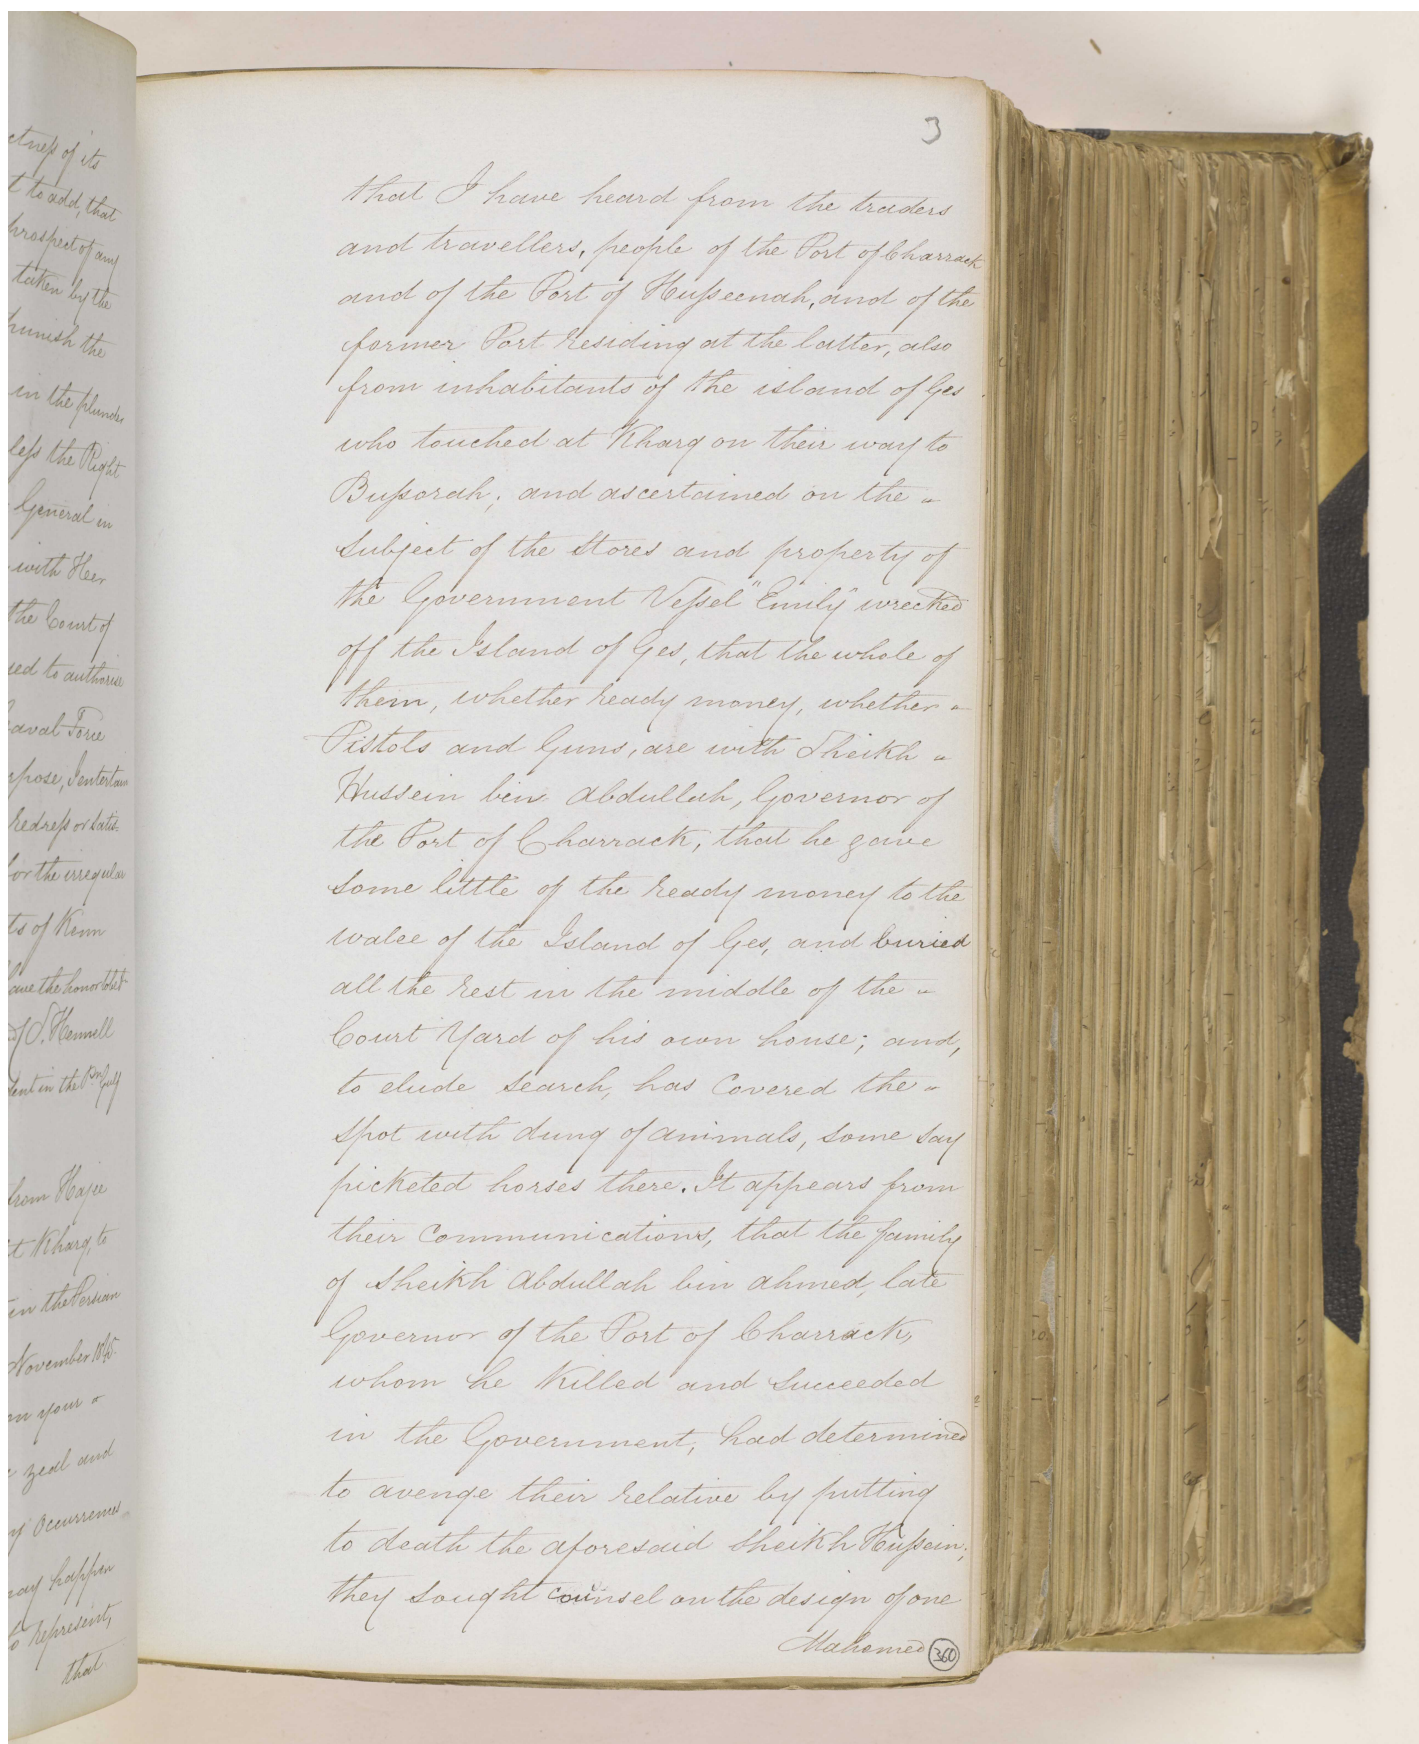 ctness of its
t to add, that
prospect of any
taken by the
punish the
in the plunder
less the Right
General in
with Her
the Court of
sed to authorise
Naval Force
pose, I entertain
redress or satis-
for the irregular
ts of Kenn
have the honor to be &c
S. Hennell
dent in the Pn Gulf
from Hajee
at Kharg, to
in the Persian
November 1845.
on your "
zeal and
ny occurrences
may happen
to represent,
that
3
that I have heard from the traders
and travellers, people of the Port of Charrack
and of the Port of Husseenah, and of the
former Port residing at the latter, also
from inhabitants of the island of Ges
who touched at Kharg on their way to
Bussorah; and ascertained on the "
subject of the stores and property of
the Government Vessel "Emily" wrecked
off the Island of Ges, that the whole of
them, whether ready money, whether "
Pistols and Guns, are with Sheikh "
Hussein bin Abdullah, Governor of
the Port of Charrack; that he gave
some little of the ready money to the
walee of the Island of Ges, and buried
all the rest in the middle of the "
Court Yard of his own house; and,
to elude search, has covered the "
spot with dung of animals, some say
picketed horses there. It appears from
their communications, that the family
of Sheikh Abdullah bin Ahmed, late
Governor of the Port of Charrack,
whom he killed and succeeded
in the Government, had determined
to avenge their relative by putting
to death the aforesaid Sheikh Hussein;
they sought counsel on the design of one
Mahomed
360